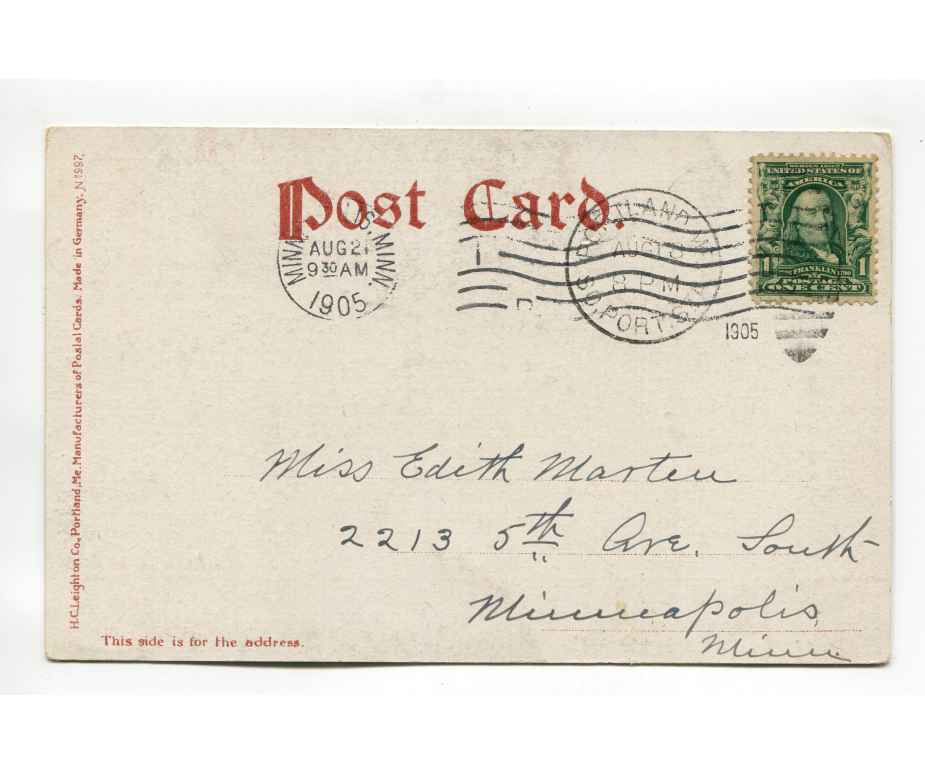 Post Card.
MINN IS, MINN.
AUG 21
9 30 AM
1905
PORTLAND, M
AUG 19
8 PM
SO. PORT. D
1905
SERIES 1902
UNITED STATES OF
AMERICA
FRANKLIN 1790
1 POSTAGE 1
ONE CENT
Miss Edith Marten
2213 5th Ave. South
Minneapolis
Minn
This side is for the address.
H.C.Leighton Co., Portland, Me. Manufacturers of Postal Cards. Made in Germany. N 1997.